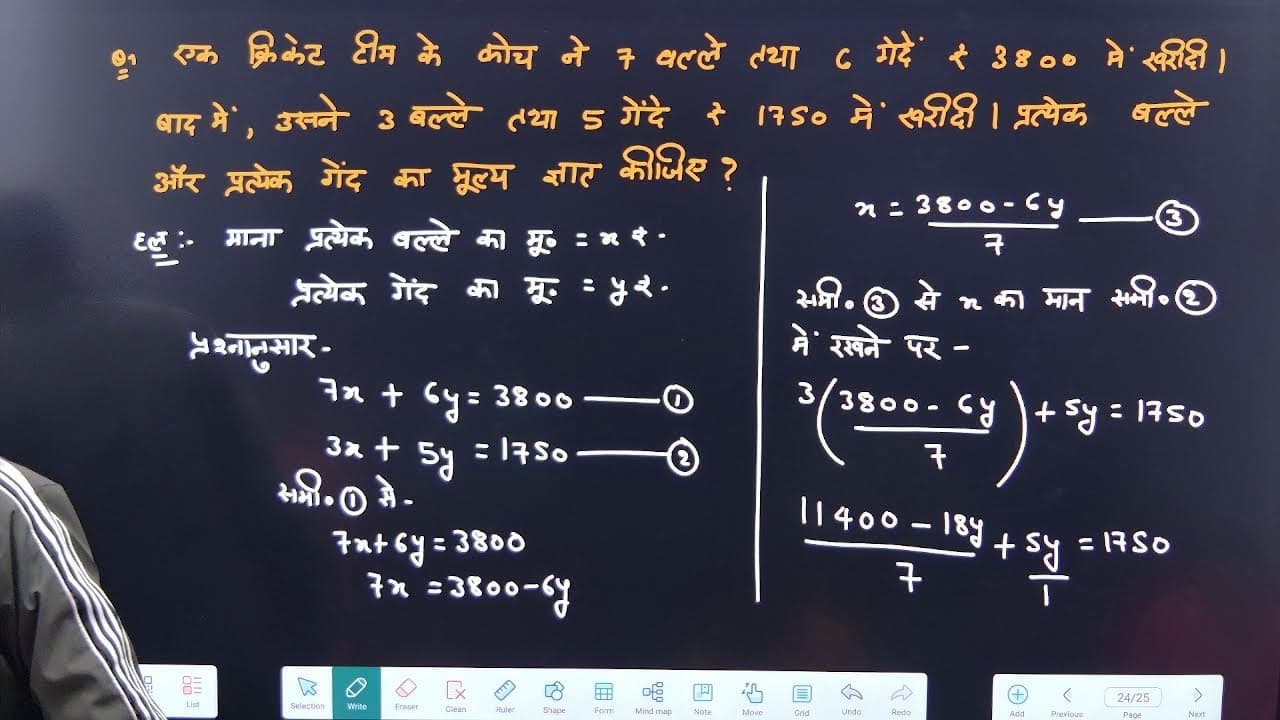 Q1 एक क्रिकेट टीम के कोच ने 7 बल्ले तथा 6 गेंदें ₹ 3800 में खरीदी।
बाद में, उसने 3 बल्ले तथा 5 गेंदे ₹ 1750 में खरीदी। प्रत्येक बल्ले
और प्रत्येक गेंद का मूल्य ज्ञात कीजिए?
हल:- माना प्रत्येक बल्ले का मू० = x रु.
प्रत्येक गेंद का मू. = y रु.
प्रश्नानुसार-
7x + 6y = 3800 —— ①
3x + 5y = 1750 —— ②
समी० ① से-
7x+6y = 3800
7x = 3800-6y
x = (3800-6y)/7 —— ③
समी० ③ से x का मान समी० ②
में रखने पर -
3((3800-6y)/7) + 5y = 1750
(11400-18y)/7 + 5y/1 = 1750
List
Selection Write Eraser Clean Ruler Shape Form Mind map Note Move Grid Undo Redo
24/25
Add Previous Page Next